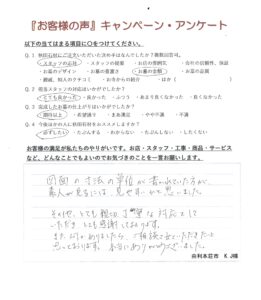 『お客様の声』キャンペーン・アンケート
以下の当てはまる項目に○をつけてください。
Q.1 秋田石材にご注文いただいた決め手はなんでしたか？複数回答可。
・スタッフの対応 ・スタッフの提案 ・お店の雰囲気 ・会社の信頼性、保証
・お墓のデザイン ・お墓の豊富さ ・お墓の金額 ・お墓の品質
・親戚、知人のクチコミ ・お寺からの紹介 ・ほか（ ）
Q.2 担当スタッフの対応はいかがでしたか？
・とても良かった ・良かった ・ふつう ・あまり良くなかった ・良くなかった
Q.3 完成したお墓の仕上がりはいかがでしたか？
・期待以上 ・希望通り ・まあ満足 ・やや不満 ・不満
Q.4 今後ほかの人に秋田石材をおススメしますか？
・必ずしたい ・たぶんする ・わからない ・たぶんしない ・したくない
お客様の満足が私たちのやりがいです。お店・スタッフ・工事・商品・サービス
など、どんなことでもよいのでお気づきのことを一言お願いします。
図面の寸法の単位が書かれていた方が、
素人が見るには、見やすいかと思いました。
その他、とても親切、丁寧な対応をして
いただき とても感謝しております。
また、何かありましたら、ご相談させていただきたいと
思っております。本当にありがとうございました。
由利本荘市 K J様